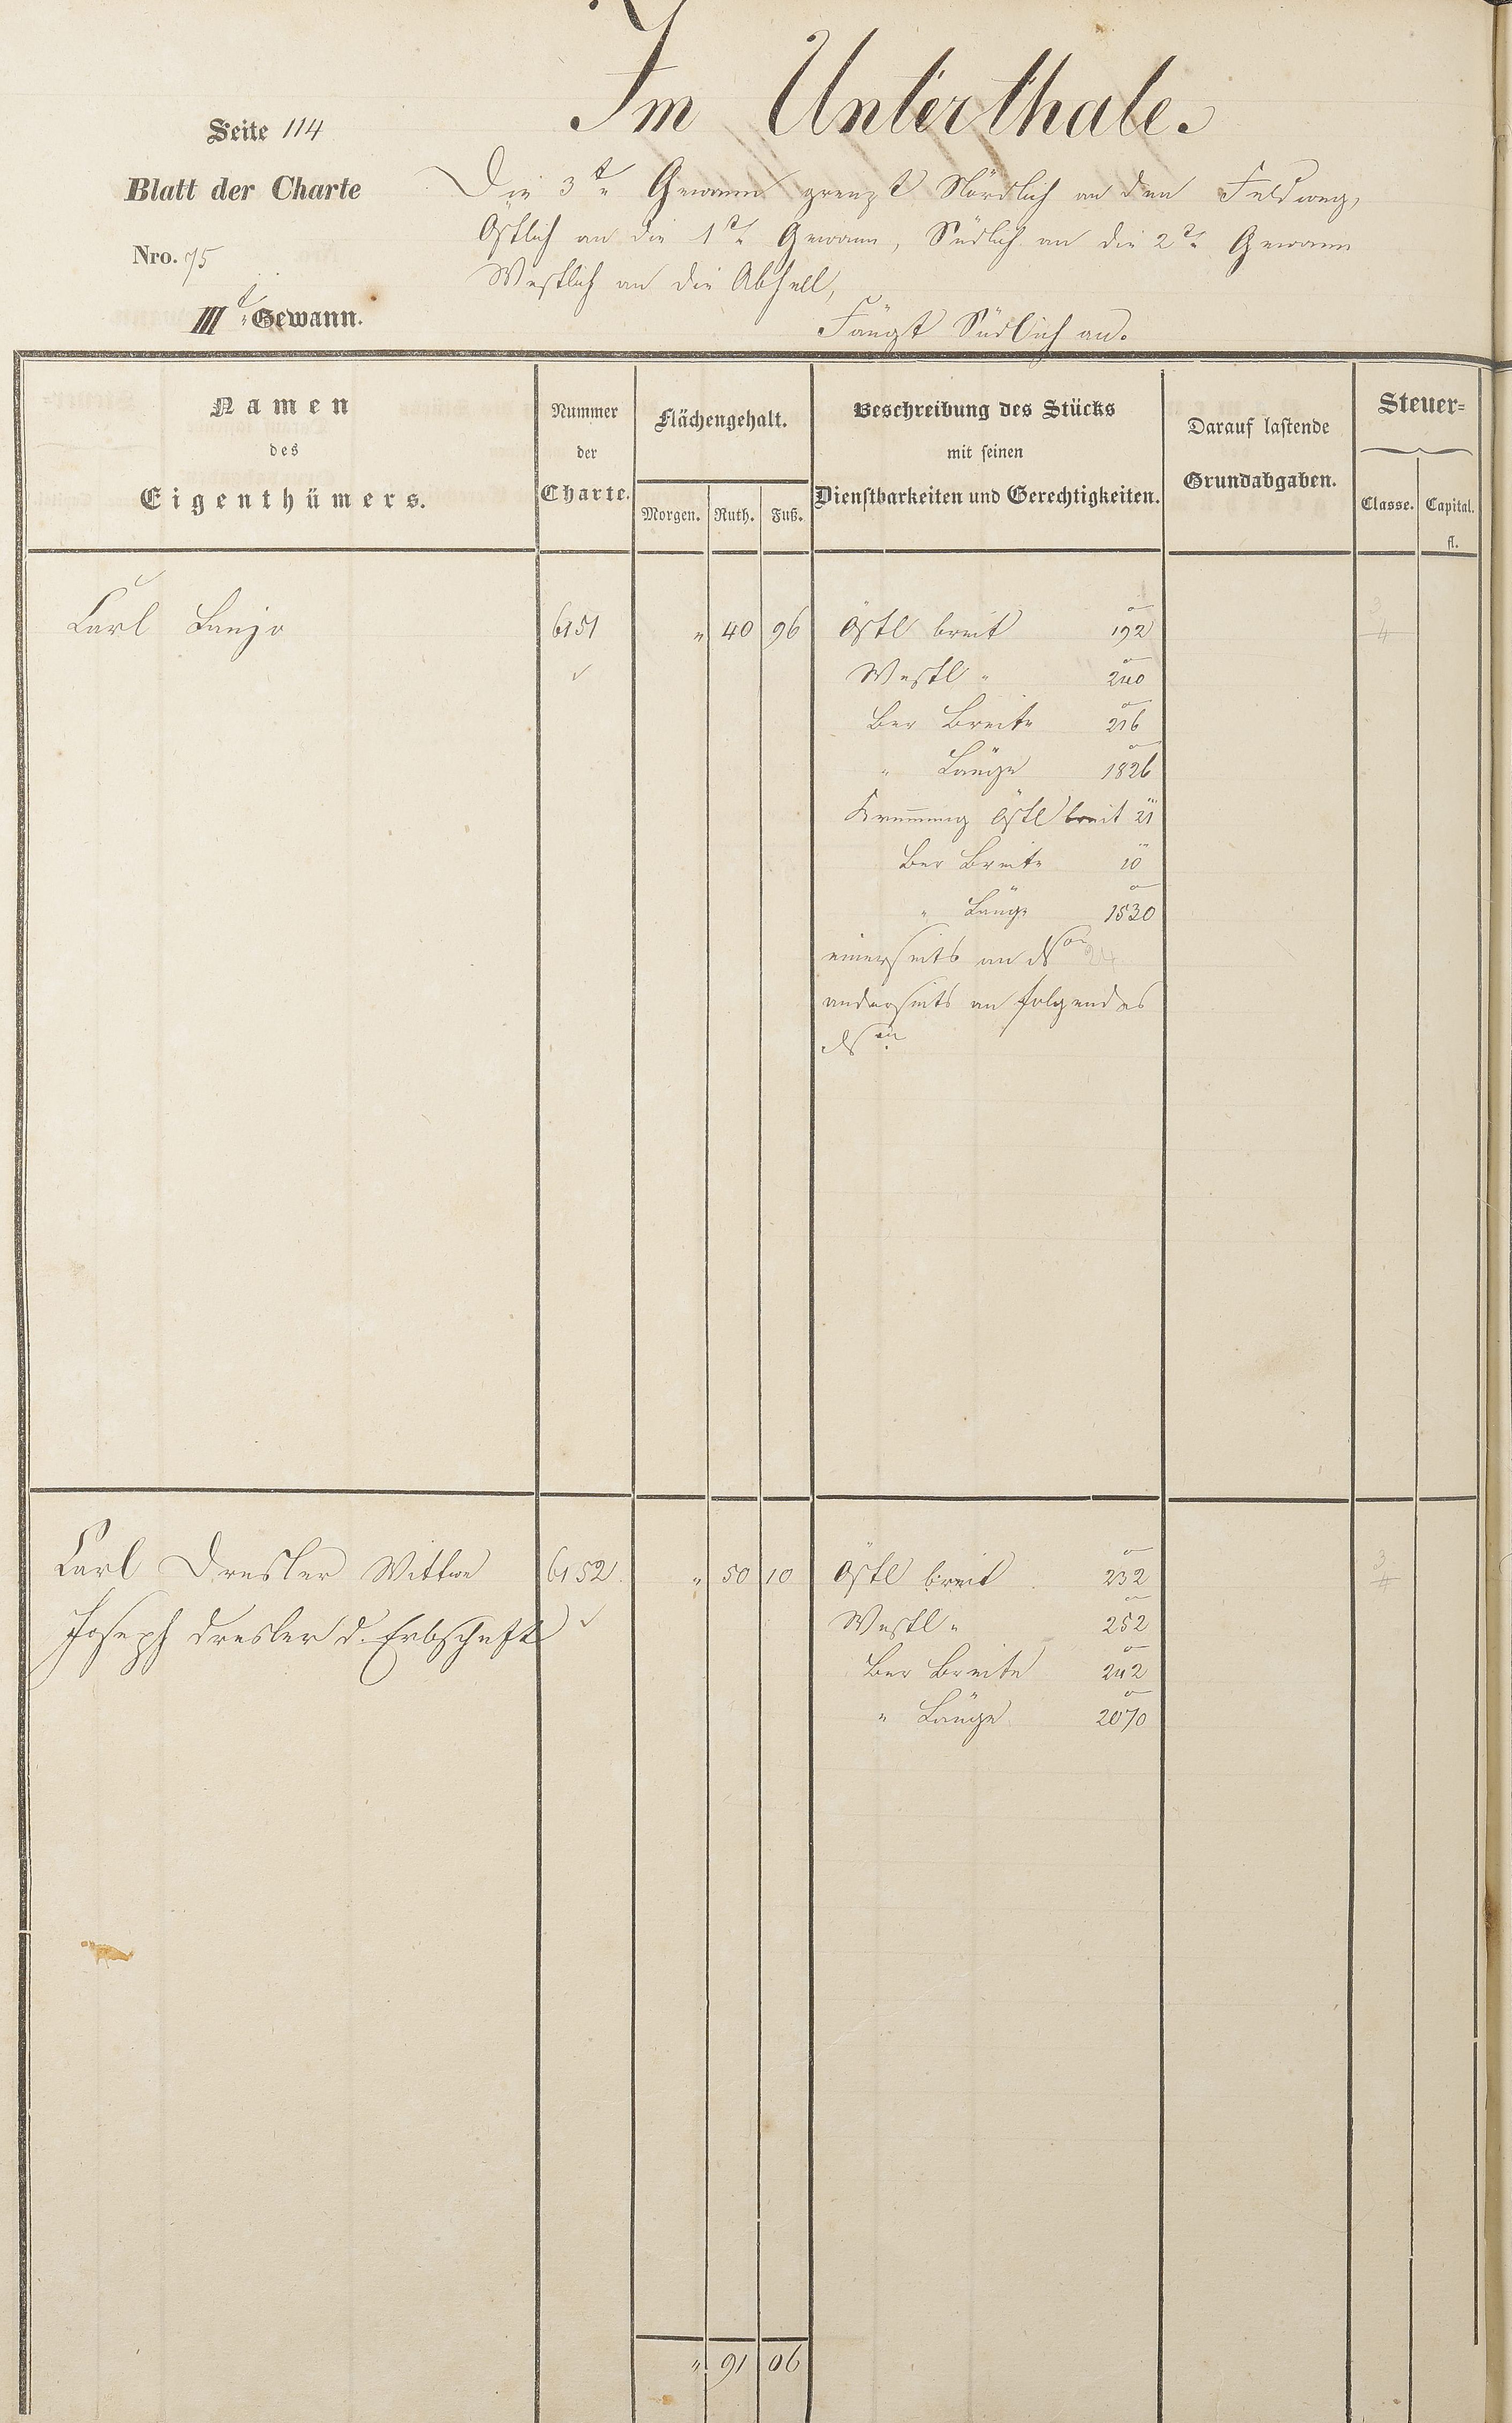 Im Unterthale.
Seite 114
Blatt der Charte
Nro. 75
III te Gewann.
Die 3te Gewann grenzt Nördlich an den Feldweg,
Östlich an die 1te Gewann, Südlich an die 2te Gewann
Westlich an die
Fängt Südlich an.
Namen
des
Eigenthümers.
Nummer
der
Charte.
Flächengehalt.
Morgen. Ruth. Fuß.
Beschreibung des Stücks
mit seinen
Dienstbarkeiten und Gerechtigkeiten.
Darauf lastende
Grundabgaben.
Steuer=
Classe. Capital.
fl.
Carl 6151 " 40 96 Östl breit 192 3
4
Westl " 240
Ber Breite 216
" Länge 1826
Krümmung Östl breit 21
Ber Breite 10
" Länge 1530
einerseits an 24
anderseits an folgendes
Carl Dresler Wittwe 6152. " 50 10 Östl breit 232 3
4
Joseph Dresler d. Erbschaft Westl " 252
Ber Breite 242
" Länge 2070
" 91 06